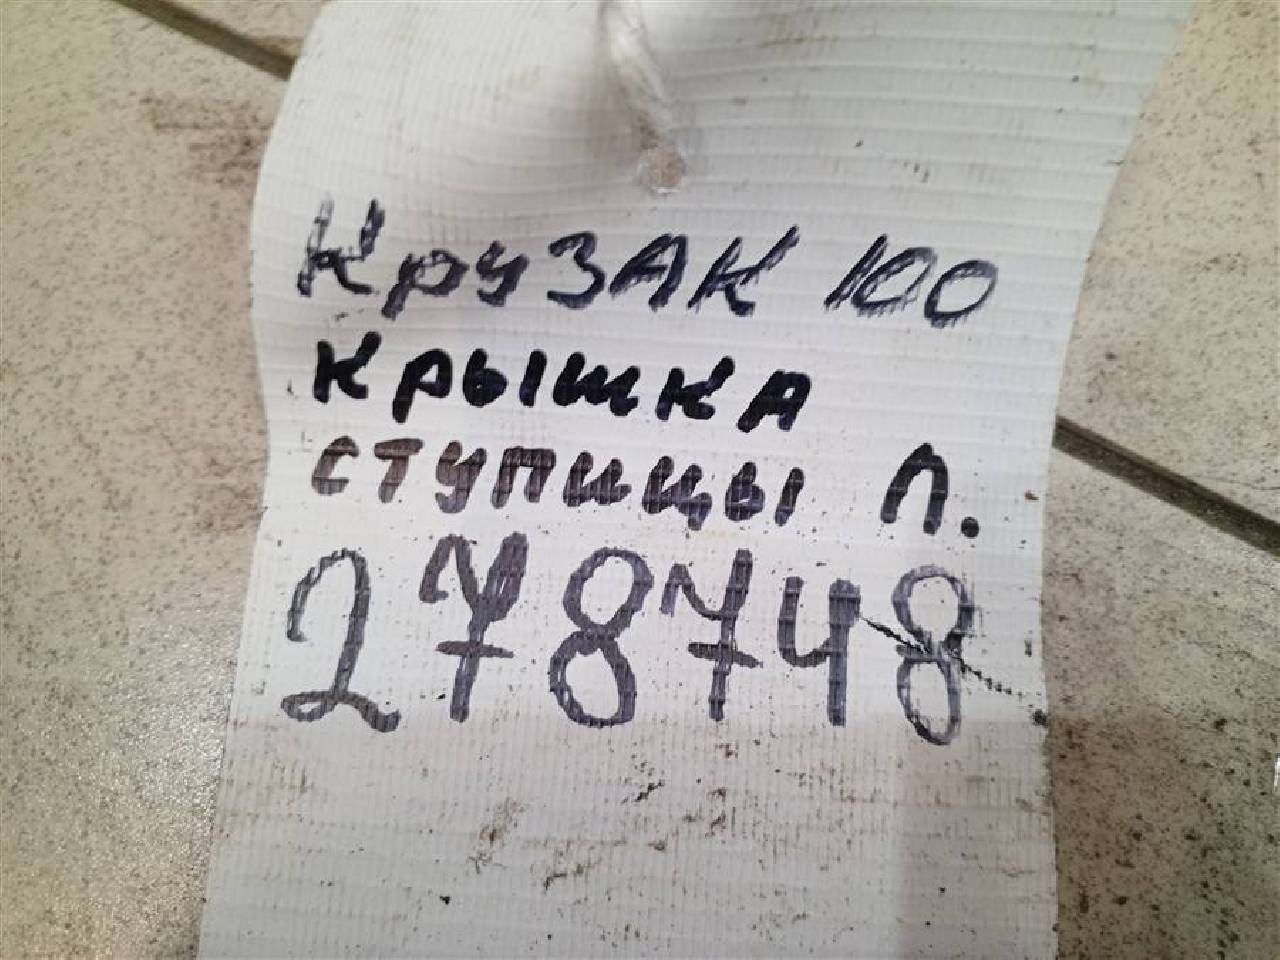 Крузак 100
крышка
ступицы Л.
278748